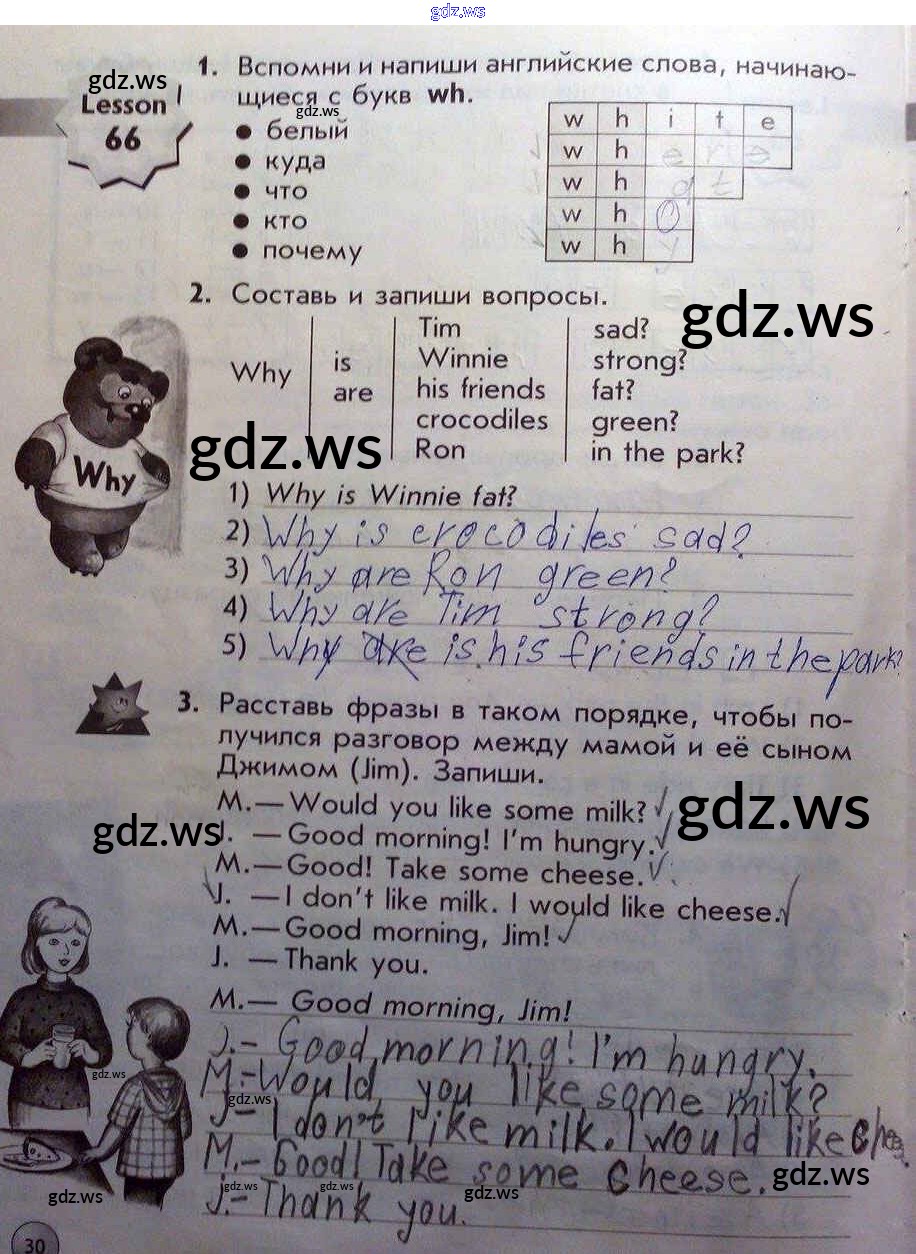 gdz.ws
gdz.ws
Lesson
66
1. Вспомни и напиши английские слова, начинаю-
щиеся с букв wh.
gdz.ws
● белый
● куда
● что
● кто
● почему
w h i t e
w h e r e
w h a t
w h o
w h y
2. Составь и запиши вопросы.
gdz.ws
Why
is
are
Tim
Winnie
his friends
crocodiles
Ron
sad?
strong?
fat?
green?
in the park?
gdz.ws
Why
1) Why is Winnie fat?
2) Why is crocodiles sad?
3) Why are Ron green?
4) Why are Tim strong?
5) Why are is his friends in the park?
3. Расставь фразы в таком порядке, чтобы по-
лучился разговор между мамой и её сыном
Джимом (Jim). Запиши.
gdz.ws
gdz.ws
M.— Would you like some milk?
J. — Good morning! I'm hungry.
M.— Good! Take some cheese.
J. — I don't like milk. I would like cheese.
M.— Good morning, Jim!
J. — Thank you.
M.— Good morning, Jim!
J.– Good morning! I'm hungry.
M.– Would you like some milk?
J.– I don't like milk. I would like chee
M.– Good! Take some cheese.
J.– Thank you.
gdz.ws
gdz.ws
gdz.ws
gdz.ws
gdz.ws
gdz.ws
gdz.ws
30